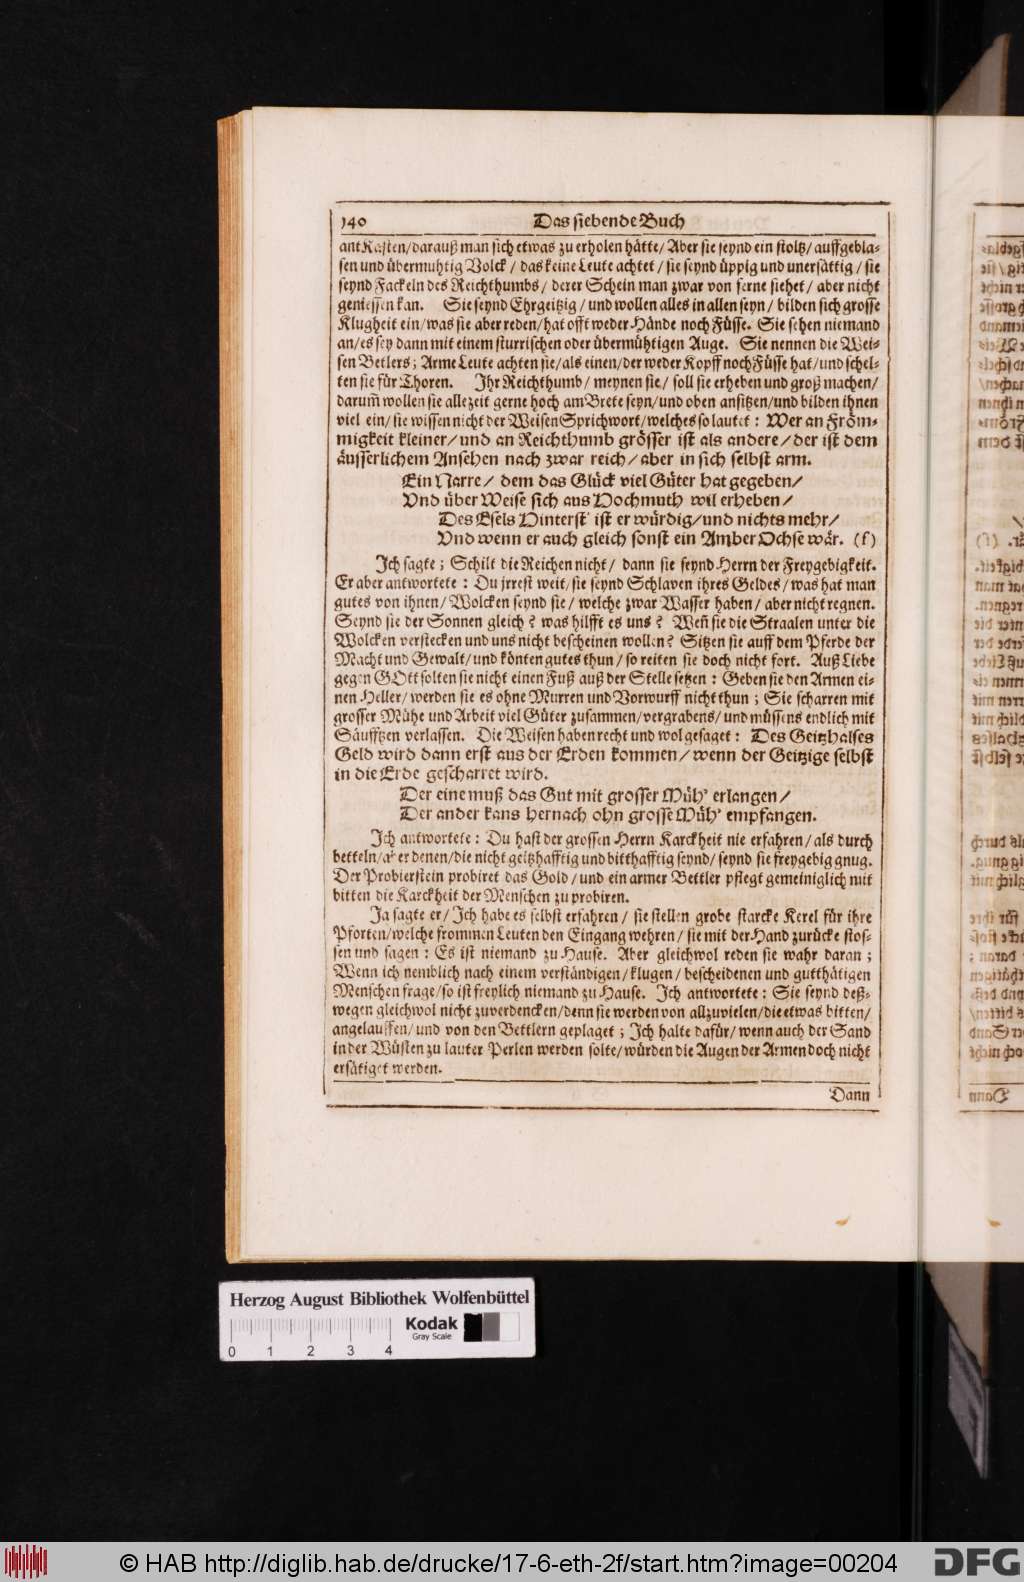 140 Das siebende Buch
ant Kasten/darauß man sich etwas zu erholen hätte/ Aber sie seynd ein stoltz/ auffgebla-
sen und übermuhtig Volck / das keine Leute achtet / sie seynd üppig und unersättig / sie
seynd Fackeln des Reichthumbs / derer Schein man zwar von ferne siehet / aber nicht
geniessen kan. Sie seynd Ehrgeitzig / und wollen alles in allen seyn / bilden sich grosse
Klugheit ein/was sie aber reden/hat offt weder Hände noch Füsse. Sie sehen niemand
an/es sey dann mit einem sturrischen oder übermühtigen Auge. Sie nennen die Wei-
sen Betlers; Arme Leute achten sie/als einen/der weder Kopff noch Füsse hat/und schel-
ten sie für Thoren. Ihr Reichthumb/ meynen sie/ soll sie erheben und groß machen/
darum̃ wollen sie allezeit gerne hoch am Brete seyn/und oben ansitzen/und bilden ihnen
viel ein/ sie wissen nicht der Weisen Sprichwort/welches so lautet : Wer an Fröm-
migkeit kleiner/und an Reichthumb grösser ist als andere/der ist dem
äusserlichem Ansehen nach zwar reich/aber in sich selbst arm.
Ein Narre/ dem das Glück viel Güter hat gegeben/
Vnd über Weise sich aus Hochmuth wil erheben/
Des Esels Hinterst ist er würdig/und nichts mehr/
Vnd wenn er auch gleich sonst ein Amber Ochse wär. (f)
Ich sagte; Schilt die Reichen nicht/ dann sie seynd Herrn der Freygebigkeit.
Er aber antwortete : Du jrrest weit/sie seynd Schlaven ihres Geldes/was hat man
gutes von ihnen/ Wolcken seynd sie/ welche zwar Wasser haben/ aber nicht regnen.
Seynd sie der Sonnen gleich? was hilfft es uns? Weñ sie die Straalen unter die
Wolcken verstecken und uns nicht bescheinen wollen? Sitzen sie auff dem Pferde der
Macht und Gewalt/und könten gutes thun/ so reiten sie doch nicht fort. Auß Liebe
gegen GOtt solten sie nicht einen Fuß auß der Stelle setzen : Geben sie den Armen ei-
nen Heller/werden sie es ohne Murren und Vorwurff nicht thun ; Sie scharren mit
grosser Mühe und Arbeit viel Güter zusammen/vergrabens/und müssens endlich mit
Säufftzen verlassen. Die Weisen haben recht und wol gesaget : Des Geitzhalses
Geld wird dann erst aus der Erden kommen/ wenn der Geitzige selbst
in die Erde gescharret wird.
Der eine muß das Gut mit grosser Müh' erlangen/
Der ander kans hernach ohn grosse Müh' empfangen.
Ich antwortete : Du hast der grossen Herrn Karckheit nie erfahren/als durch
betteln/aber denen/die nicht geitzhafftig und bitthafftig seynd/ seynd sie freygebig gnug.
Der Probierstein probiret das Gold/und ein armer Bettler pflegt gemeiniglich mit
bitten die Karckheit der Menschen zu probiren.
Ja sagte er/ Ich habe es selbst erfahren/ sie stellen grobe starcke Kerel für ihre
Pforten/welche frommen Leuten den Eingang wehren/ sie mit der Hand zurücke stos-
sen und sagen : Es ist niemand zu Hause. Aber gleichwol reden sie wahr daran ;
Wenn ich nemblich nach einem verständigen/klugen/ bescheidenen und gutthätigen
Menschen frage/so ist freylich niemand zu Hause. Ich antwortete : Sie seynd deß-
wegen gleichwol nicht zuverdencken/denn sie werden von allzuvielen/die etwas bitten/
angelauffen/und von den Bettlern geplaget ; Ich halte dafür/wenn auch der Sand
in der Wüsten zu lauter Perlen werden solte/würden die Augen der Armen doch nicht
ersätiget werden.
Dann
Herzog August Bibliothek Wolfenbüttel
Kodak
Gray Scale
0 1 2 3 4
© HAB http://diglib.hab.de/drucke/17-6-eth-2f/start.htm?image=00204
DFG